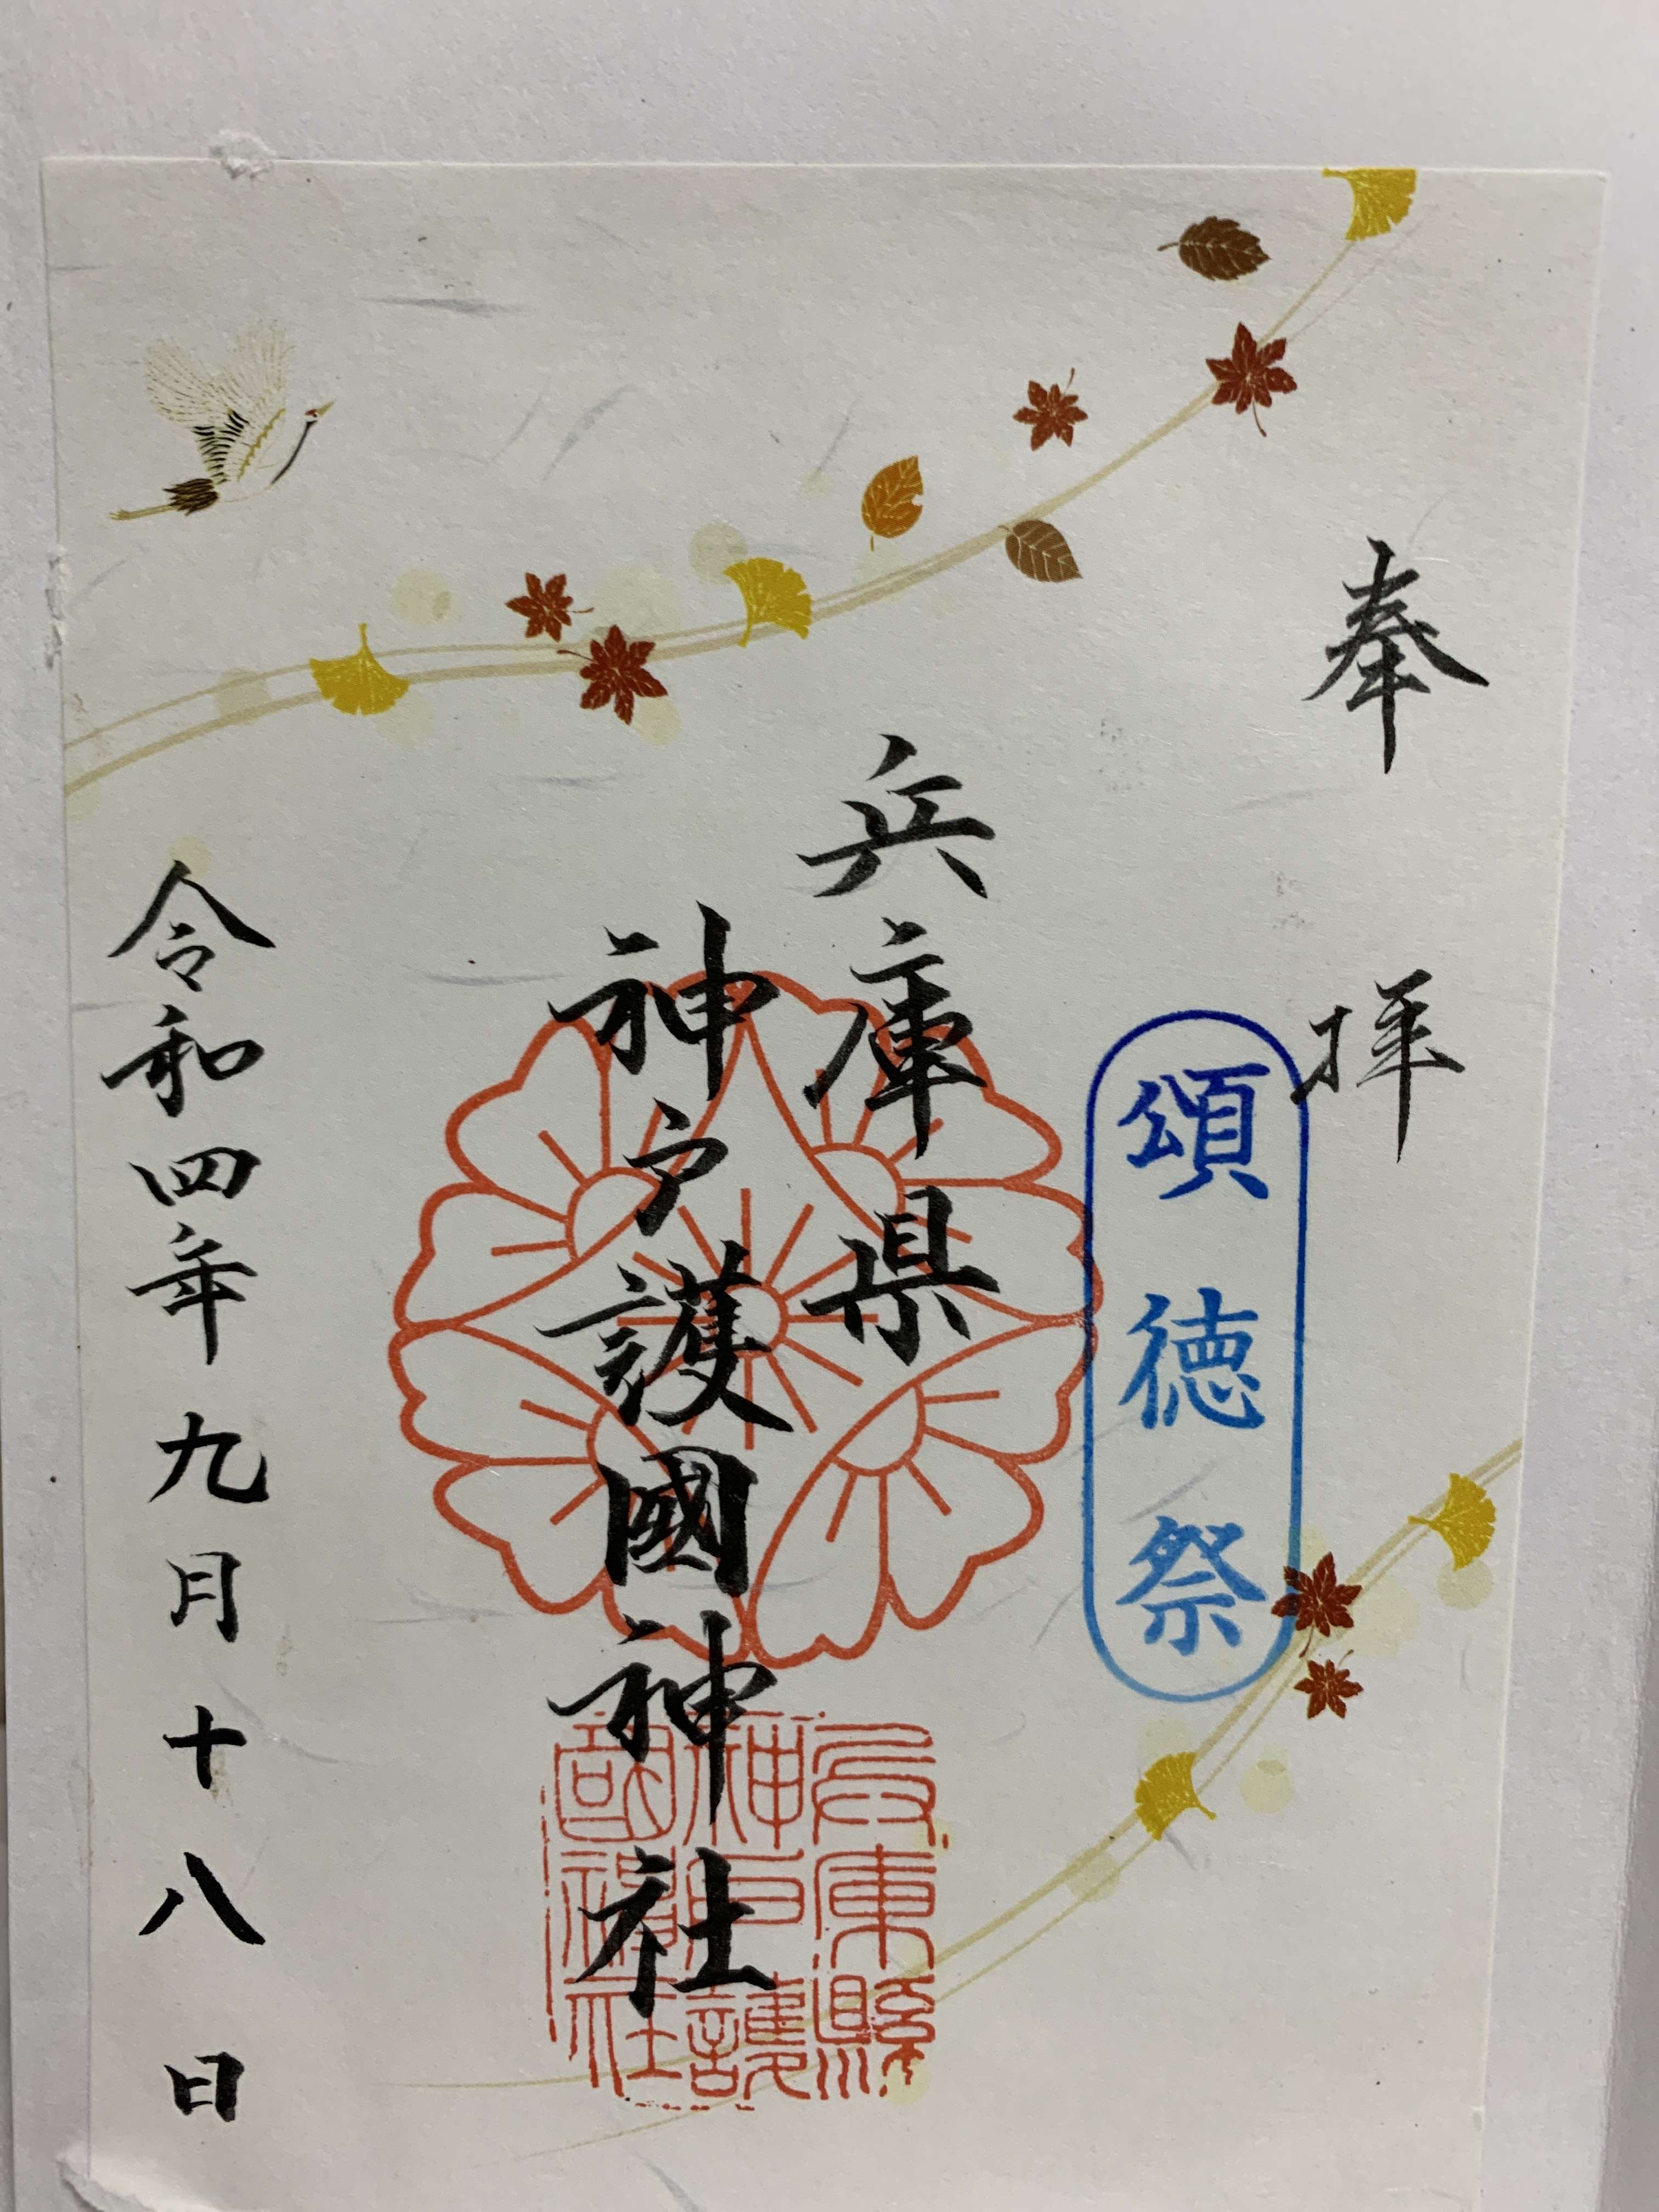 奉拝
頌徳祭
兵庫県
神戸護國神社
令和四年九月十八日
兵庫縣
神戸護
國神社